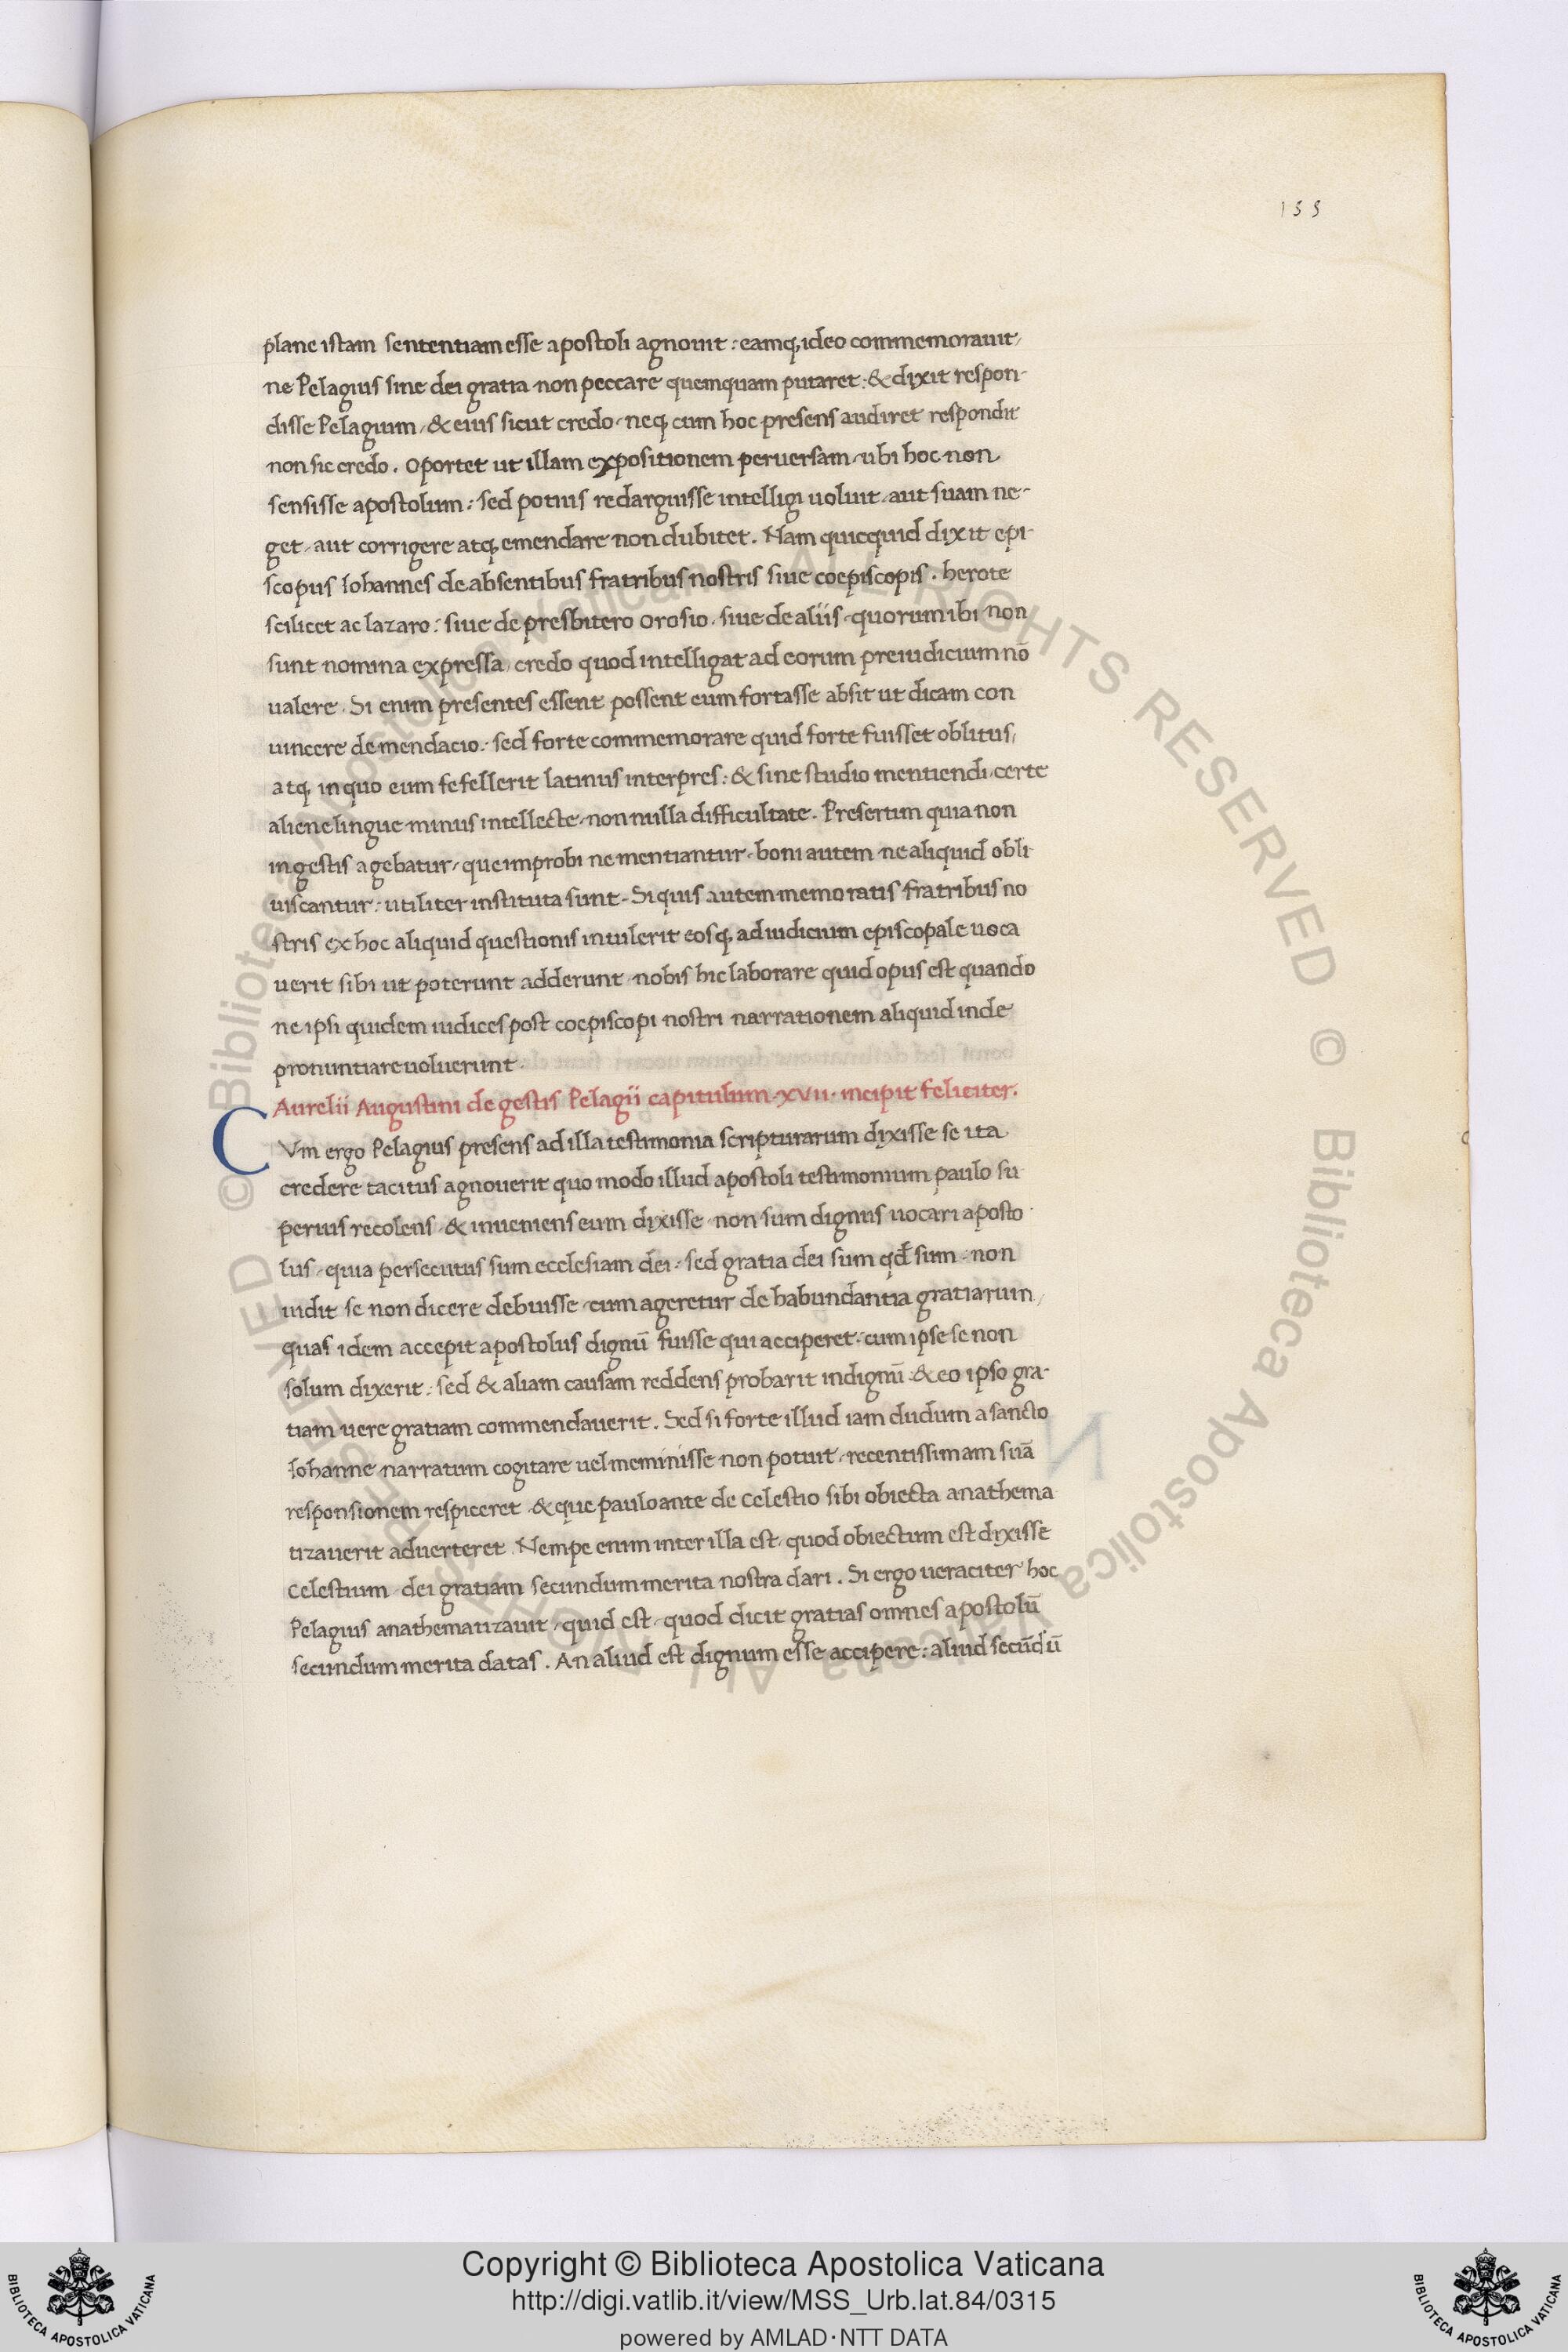 155
plane istam sententiam esse apostoli agnouit : eamq; ideo commemorauit,
ne Pelagius sine dei gratia non peccare quemquam putaret : & dixit respon-
disse Pelagium, & eius sicut credo, neq; cum hoc presens audiret respondit
non sic credo. Oportet ut illam expositionem peruersam, ubi hoc non
sensisse apostolum : sed potius redarguisse intelligi uoluit, aut suam ne-
get, aut corrigere atq; emendare non dubitet. Nam quicquid dixit epi-
scopus Iohannes de absentibus fratribus nostris siue coepiscopis. herote
scilicet ac lazaro : siue de presbitero Orosio, siue de aliis, quorum ibi non
sunt nomina expressa, credo quod intelligat ad eorum preiudicium nō
ualere. Si enim presentes essent possent eum fortasse absit ut dicam con
uincere de mendacio : sed forte commemorare quid forte fuisset oblitus,
atq; in quo eum fefellerit latinus interpres : & sine studio mentiendi, certe
aliene lingue minus intellecte, non nulla difficultate. Presertim quia non
in gestis agebatur, que improbi ne mentiantur, boni autem ne aliquid obli-
uiscantur : utiliter instituta sunt. Si quis autem memoratis fratribus no
stris ex hoc aliquid questionis intulerit eosq; ad iudicium episcopale uoca
uerit sibi ut poterunt adderunt, nobis hic laborare quid opus est quando
ne ipsi quidem iudices post coepiscopi nostri narrationem aliquid inde
pronuntiare uoluerunt.
Aurelii Augustini de gestis Pelagii capitulum .xvii. incipit feliciter.
CVm ergo Pelagius presens ad illa testimonia scripturarum dixisse se ita
credere tacitus agnouerit quo modo illud apostoli testimonium paulo su
perius recolens, & inueniens eum dixisse, non sum dignus uocari aposto
lus, quia persecutus sum ecclesiam dei : sed gratia dei sum qđ sum : non
uidit se non dicere debuisse, cum ageretur de habundantia gratiarum,
quas idem accepit apostolus dignū fuisse qui acciperet, cum ipse se non
solum dixerit : sed & aliam causam reddens probarit indignū : & eo ipso gra-
tiam uere gratiam commendauerit. Sed si forte illud iam dudum a sancto
Iohanne narratum cogitare uel meminisse non potuit, recentissimam suā
responsionem respiceret, & que paulo ante de Celestio sibi obiecta anathema
tizauerit aduerteret. Nempe enim inter illa est, quod obiectum est dixisse
Celestium, dei gratiam secundum merita nostra dari. Si ergo ueraciter hoc
Pelagius anathematizauit, quid est, quod dicit gratias omnes apostolū
secundum merita datas. An aliud est dignum esse accipere : aliud secūdū
Copyright © Biblioteca Apostolica Vaticana
http://digi.vatlib.it/view/MSS_Urb.lat.84/0315
powered by AMLAD·NTT DATA
BIBLIOTECA APOSTOLICA VATICANA
BIBLIOTECA APOSTOLICA VATICANA